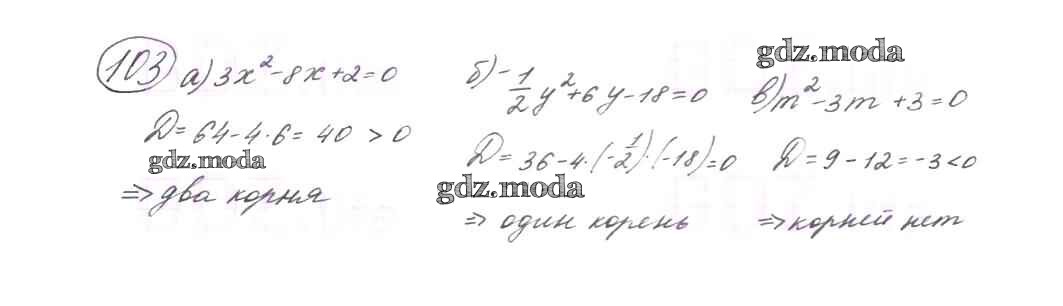 103 а) 3x² - 8x + 2 = 0
D = 64 - 4·6 = 40 > 0
gdz.moda
=> два корня
б) -1/2 y² + 6y - 18 = 0
D = 36 - 4·(-1/2)·(-18) = 0
gdz.moda
=> один корень
gdz.moda
в) m² - 3m + 3 = 0
D = 9 - 12 = -3 < 0
=> корней нет